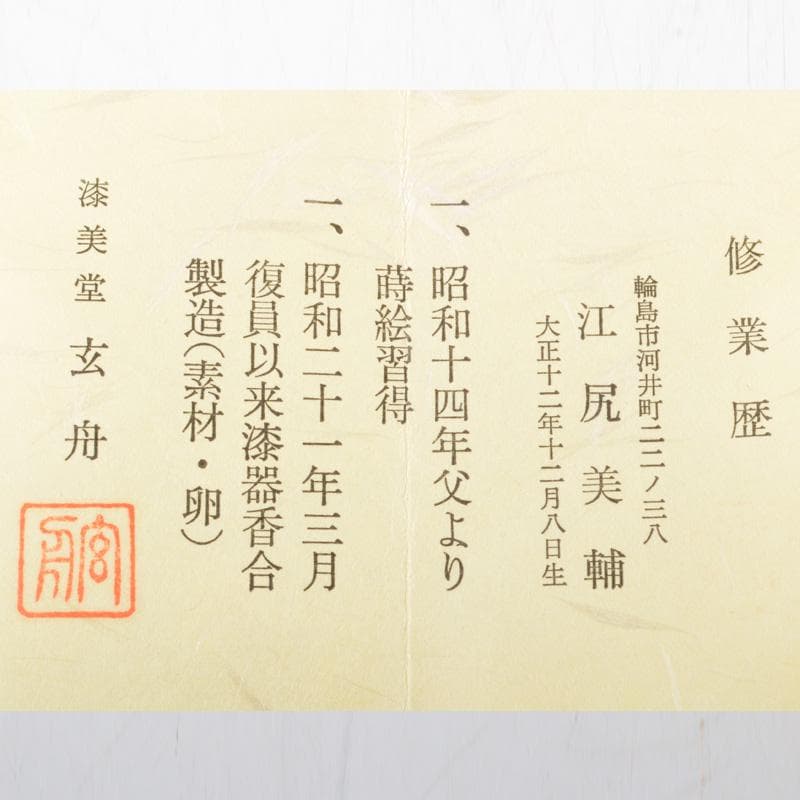 修業歴
輪島市河井町二二ノ三八
江尻美輔
大正十二年十二月八日生
一、昭和十四年父より
蒔絵習得
一、昭和二十一年三月
復員以来漆器香合
製造(素材・卵)
漆美堂 玄舟
玄舟